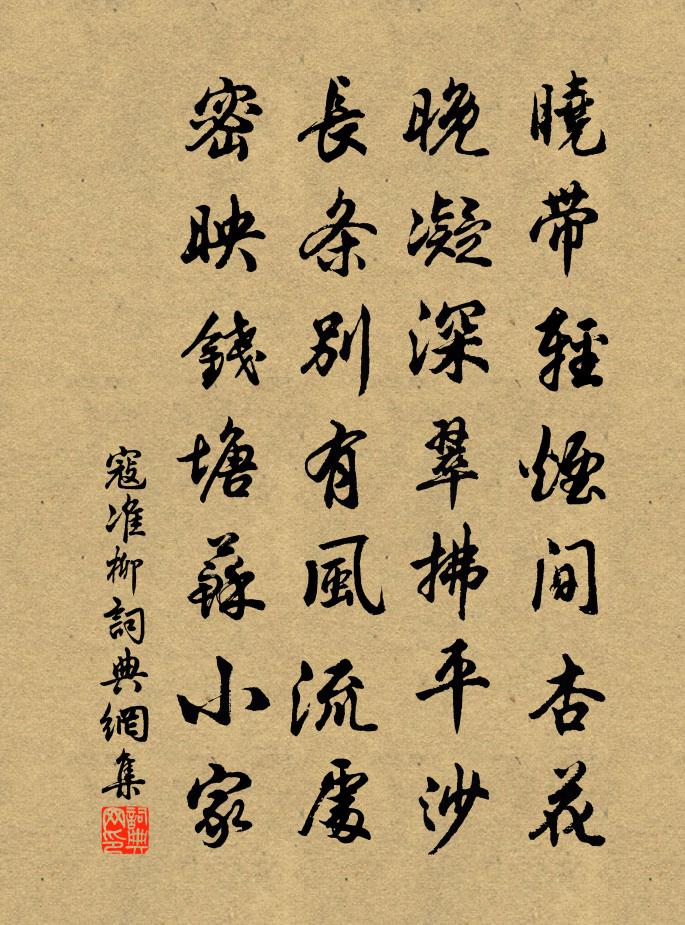 曉帶輕煙間杏花
晚凝深翠拂平沙
長条別有風流處
密映錢塘蘇小家
寇准柳詞典網集
詞典网印